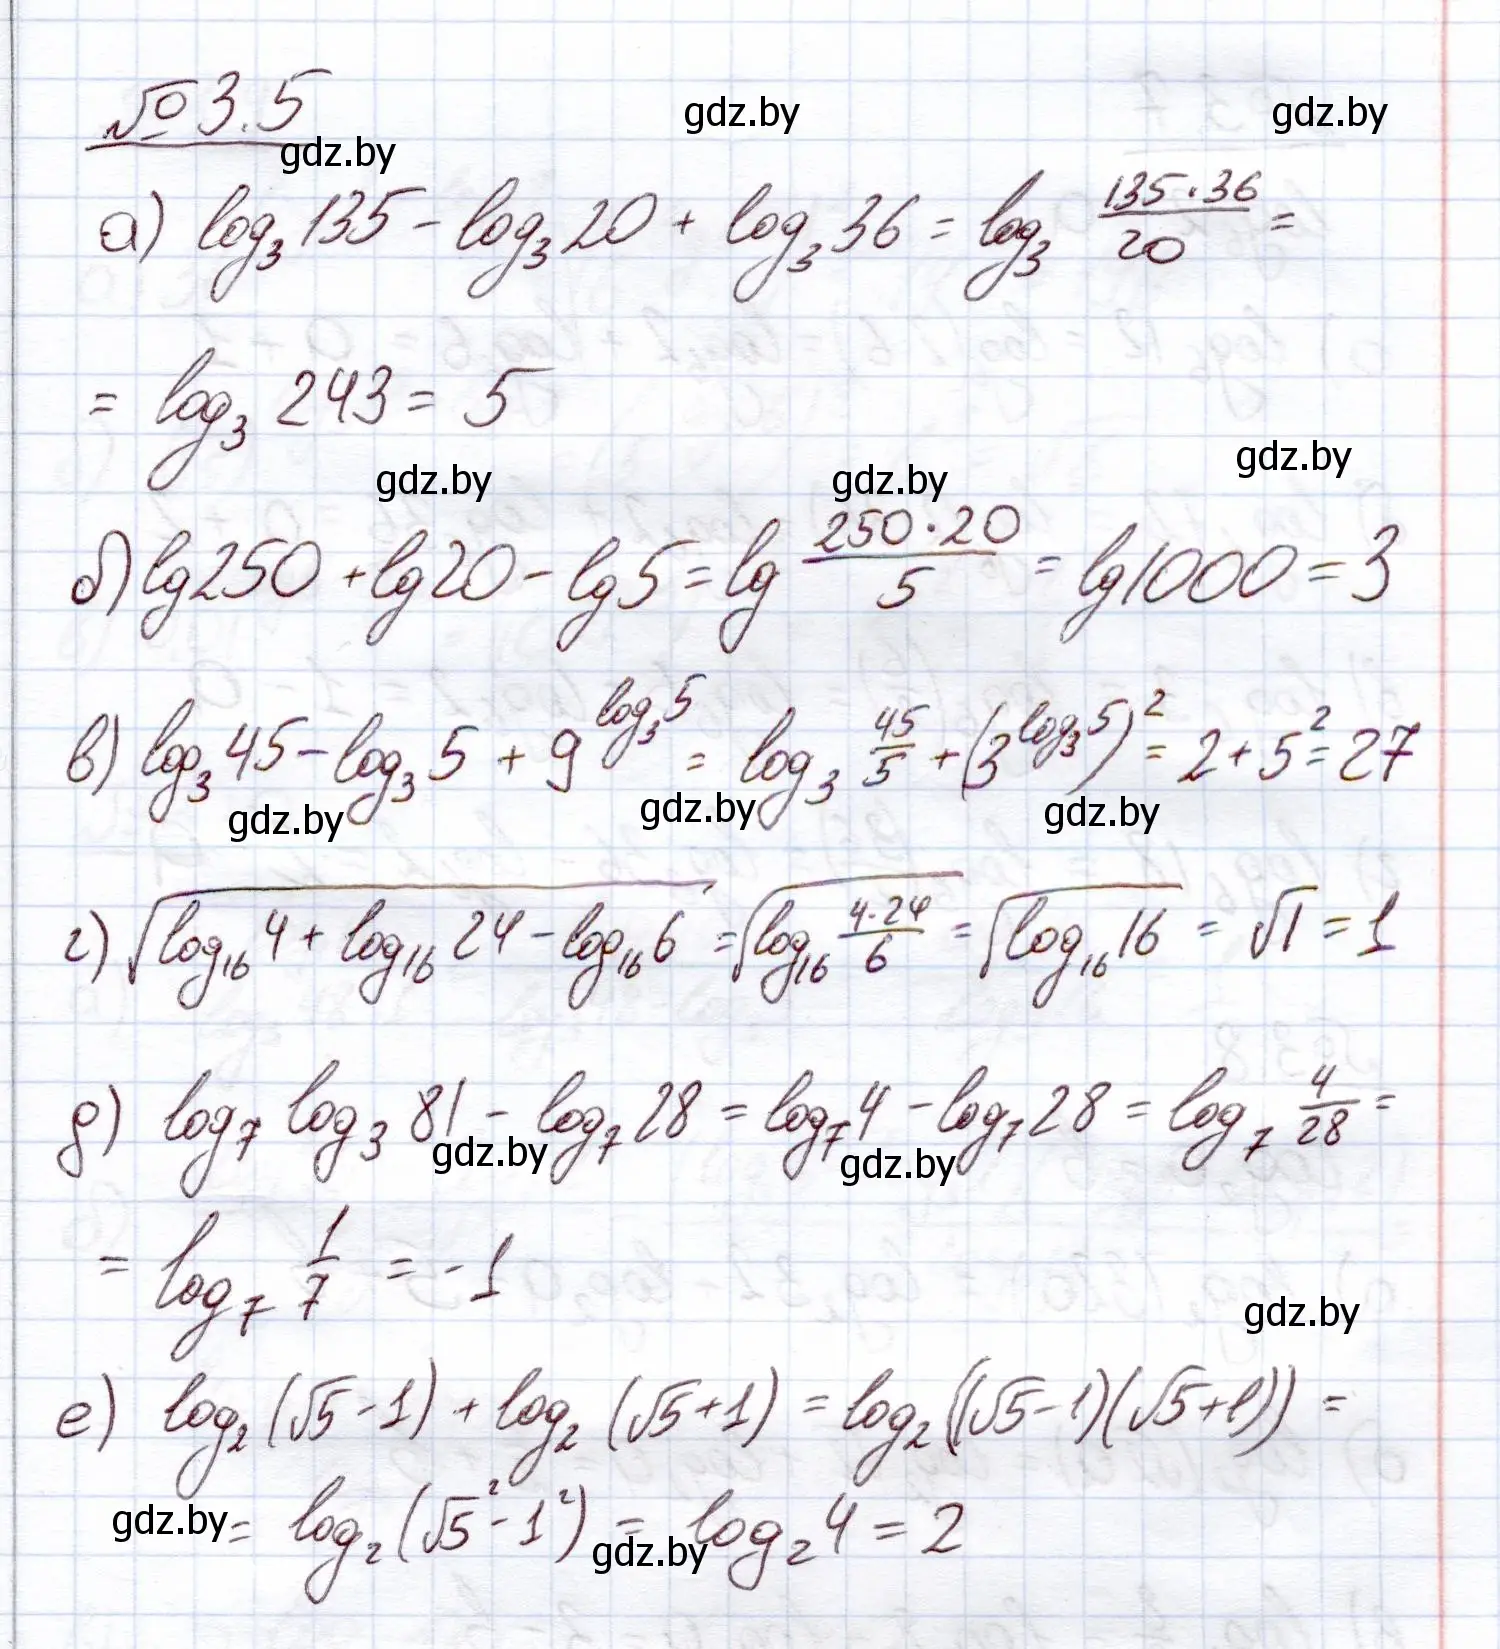 № 3.5
gdz.by gdz.by gdz.by
а) log₃ 135 - log₃ 20 + log₃ 36 = log₃ (135·36)/20 =
= log₃ 243 = 5
gdz.by gdz.by gdz.by
б) lg 250 + lg 20 - lg 5 = lg (250·20)/5 = lg 1000 = 3
в) log₃ 45 - log₃ 5 + 9^(log₃ 5) = log₃ 45/5 + (3^(log₃ 5))² = 2 + 5² = 27
gdz.by gdz.by gdz.by
г) √(log₁₆ 4 + log₁₆ 24 - log₁₆ 6) = √(log₁₆ (4·24)/6) = √(log₁₆ 16) = √1 = 1
д) log₇ log₃ 81 - log₇ 28 = log₇ 4 - log₇ 28 = log₇ 4/28 =
gdz.by gdz.by
= log₇ 1/7 = -1
gdz.by
е) log₂ (√5 - 1) + log₂ (√5 + 1) = log₂ ((√5 - 1)(√5 + 1)) =
gdz.by = log₂ (√5² - 1²) = log₂ 4 = 2
gdz.by